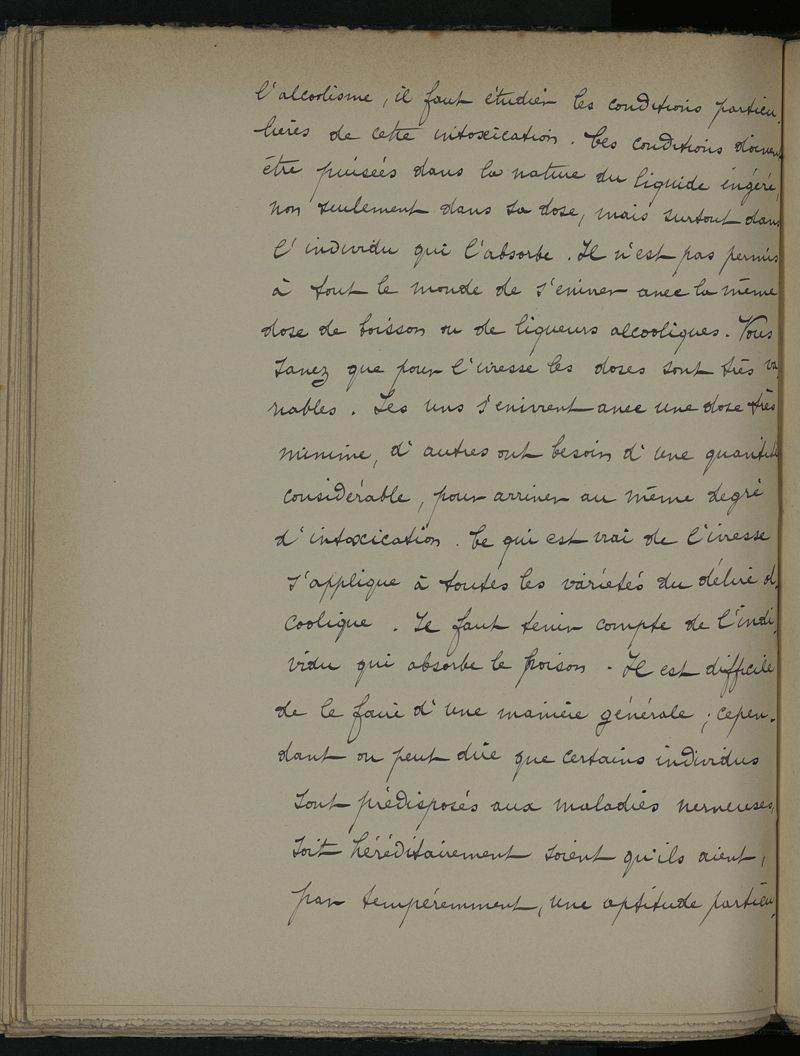 l'alcoolisme, il faut étudier les conditions particu-
lières de cette intoxication. Ces conditions doivent
être puisées dans la nature du liquide ingéré,
non seulement dans sa dose, mais surtout dans
l'individu qui l'absorbe. Il n'est pas permis
à tout le monde de s'enivrer avec la même
dose de boisson ou de liqueurs alcooliques. Vous
savez que pour l'ivresse les doses sont très va-
riables. Les uns s'enivrent avec une dose très
minime, d'autres ont besoin d'une quantité
considérable, pour arriver au même degré
d'intoxication. Ce qui est vrai de l'ivresse
s'applique à toutes les variétés du délire al-
coolique. Il faut tenir compte de l'indi-
vidu qui absorbe le poison. Il est difficile
de le faire d'une manière générale; cepen-
dant on peut dire que certains individus
sont prédisposés aux maladies nerveuses,
soit héréditairement soient qu'ils aient,
par tempéremment, une aptitude particu-